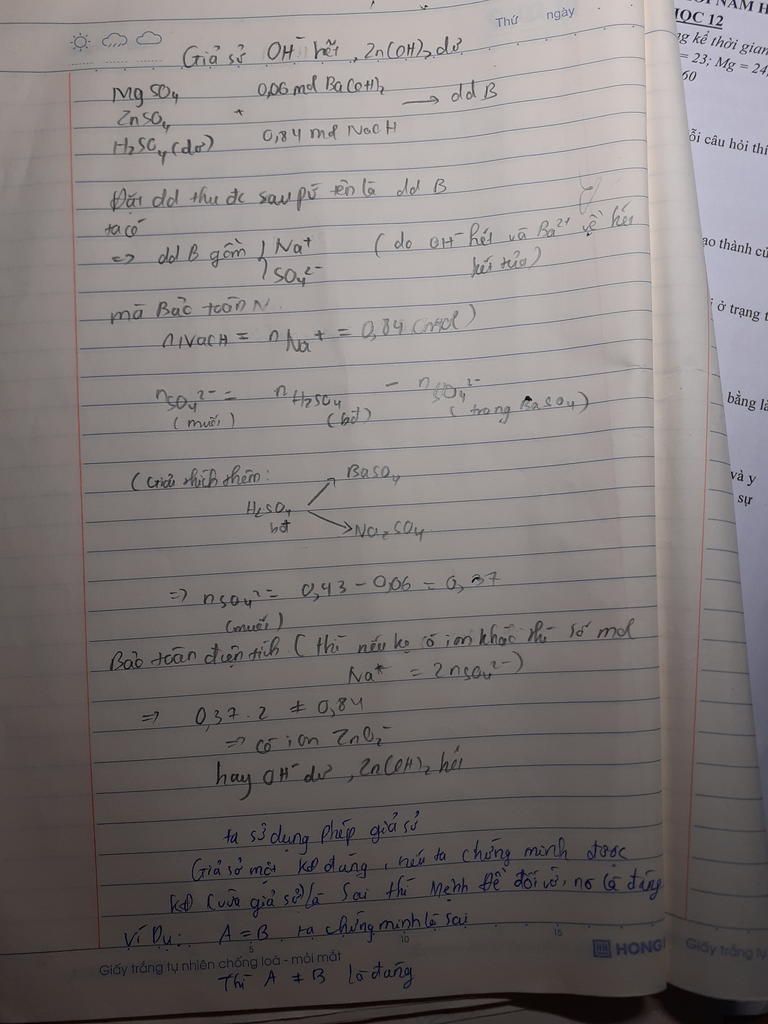 Thứ ngày
Giả sử OH⁻ hết, Zn(OH)₂ dư
MgSO₄ 0,06 mol Ba(OH)₂
ZnSO₄ + → dd B
H₂SO₄ (dư) 0,84 mol NaOH
Đặt dd thu đc sau pứ tên là dd B
ta có
=> dd B gồm { Na⁺ (do OH⁻ hết và Ba²⁺ về hết
SO₄²⁻ kết tủa)
mà Bảo toàn N
nNaOH = nNa⁺ = 0,84 (mol)
nSO₄²⁻ = nH₂SO₄ - nSO₄²⁻
(muối) (bđ) (trong BaSO₄)
(Giải thích thêm: BaSO₄
H₂SO₄
bđ Na₂SO₄
=> nSO₄²⁻ = 0,43 - 0,06 = 0,37
(muối)
Bảo toàn điện tích (thì nếu ko có ion khác thì số mol
Na⁺ = 2nSO₄²⁻)
=> 0,37.2 ≠ 0,84
=> có ion ZnO₂⁻
hay OH⁻ dư, Zn(OH)₂ hết
ta sử dụng phép giả sử
Giả sử một KĐ đúng, nếu ta chứng minh được
KĐ (vừa giả sử) là sai thì mệnh đề đối với nó là đúng
Ví Dụ: A = B ta chứng minh là sai
Thì A ≠ B là đúng
5 10 15
Giấy trắng tự nhiên chống loá - mỏi mắt
HONG
Giấy trắng tự
NĂM H
HỌC 12
kể thời gian
= 23; Mg = 24
60
ỗi câu hỏi thí
ạo thành
ở trang
bằng
và y
sự